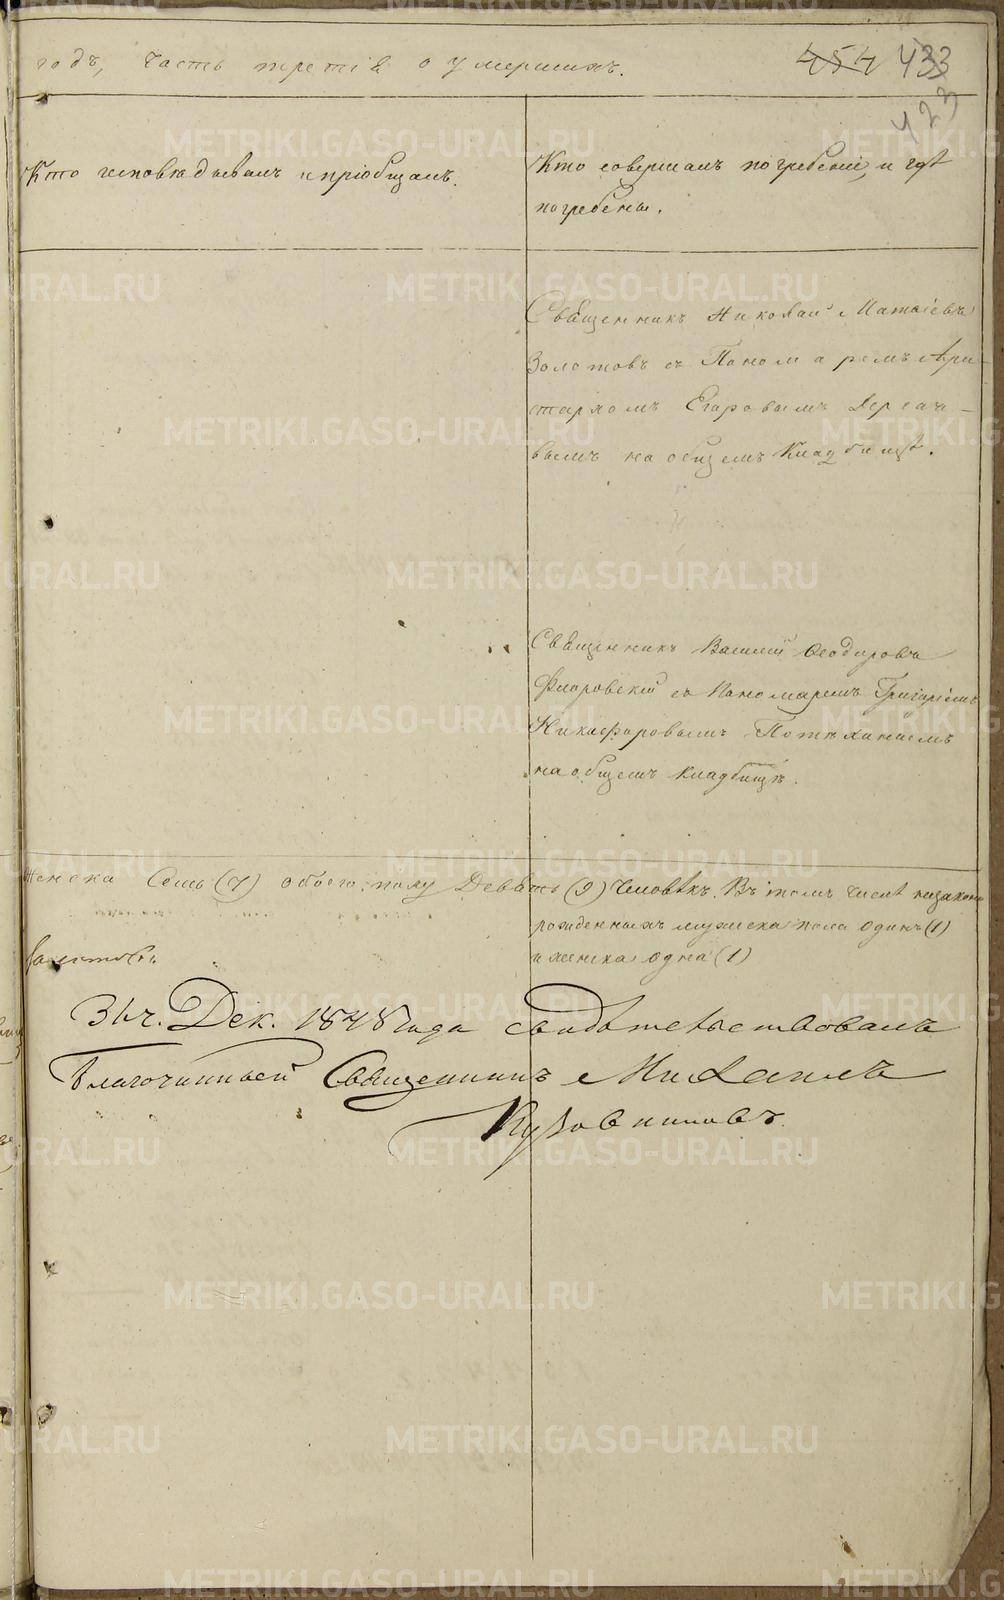 годъ, часть третія о умершихъ.
454 433
423
Кто исповѣдывалъ и пріобщалъ.
Кто совершалъ погребеніе, и гдѣ
погребены.
Священникъ Николай Матѳіевъ
Золотовъ съ Пономаремъ Ари-
стархомъ Егоровымъ
вымъ на общемъ Кладбищѣ.
Священникъ Василій Ѳеодоровъ
Флоровскій съ Пономаремъ Григоріемъ
Никифоровымъ
на общемъ кладбищѣ.
женска Семь (7) обоего полу Девять (9) Человѣкъ. Въ томъ числѣ незаконно
рожденныхъ мужска пола одинъ (1)
и женска одна (1)
31 ч. Дек. 1848 года свидѣтельствовалъ
Благочинный Священникъ Михаилъ
METRIKI.GASO-URAL.RU